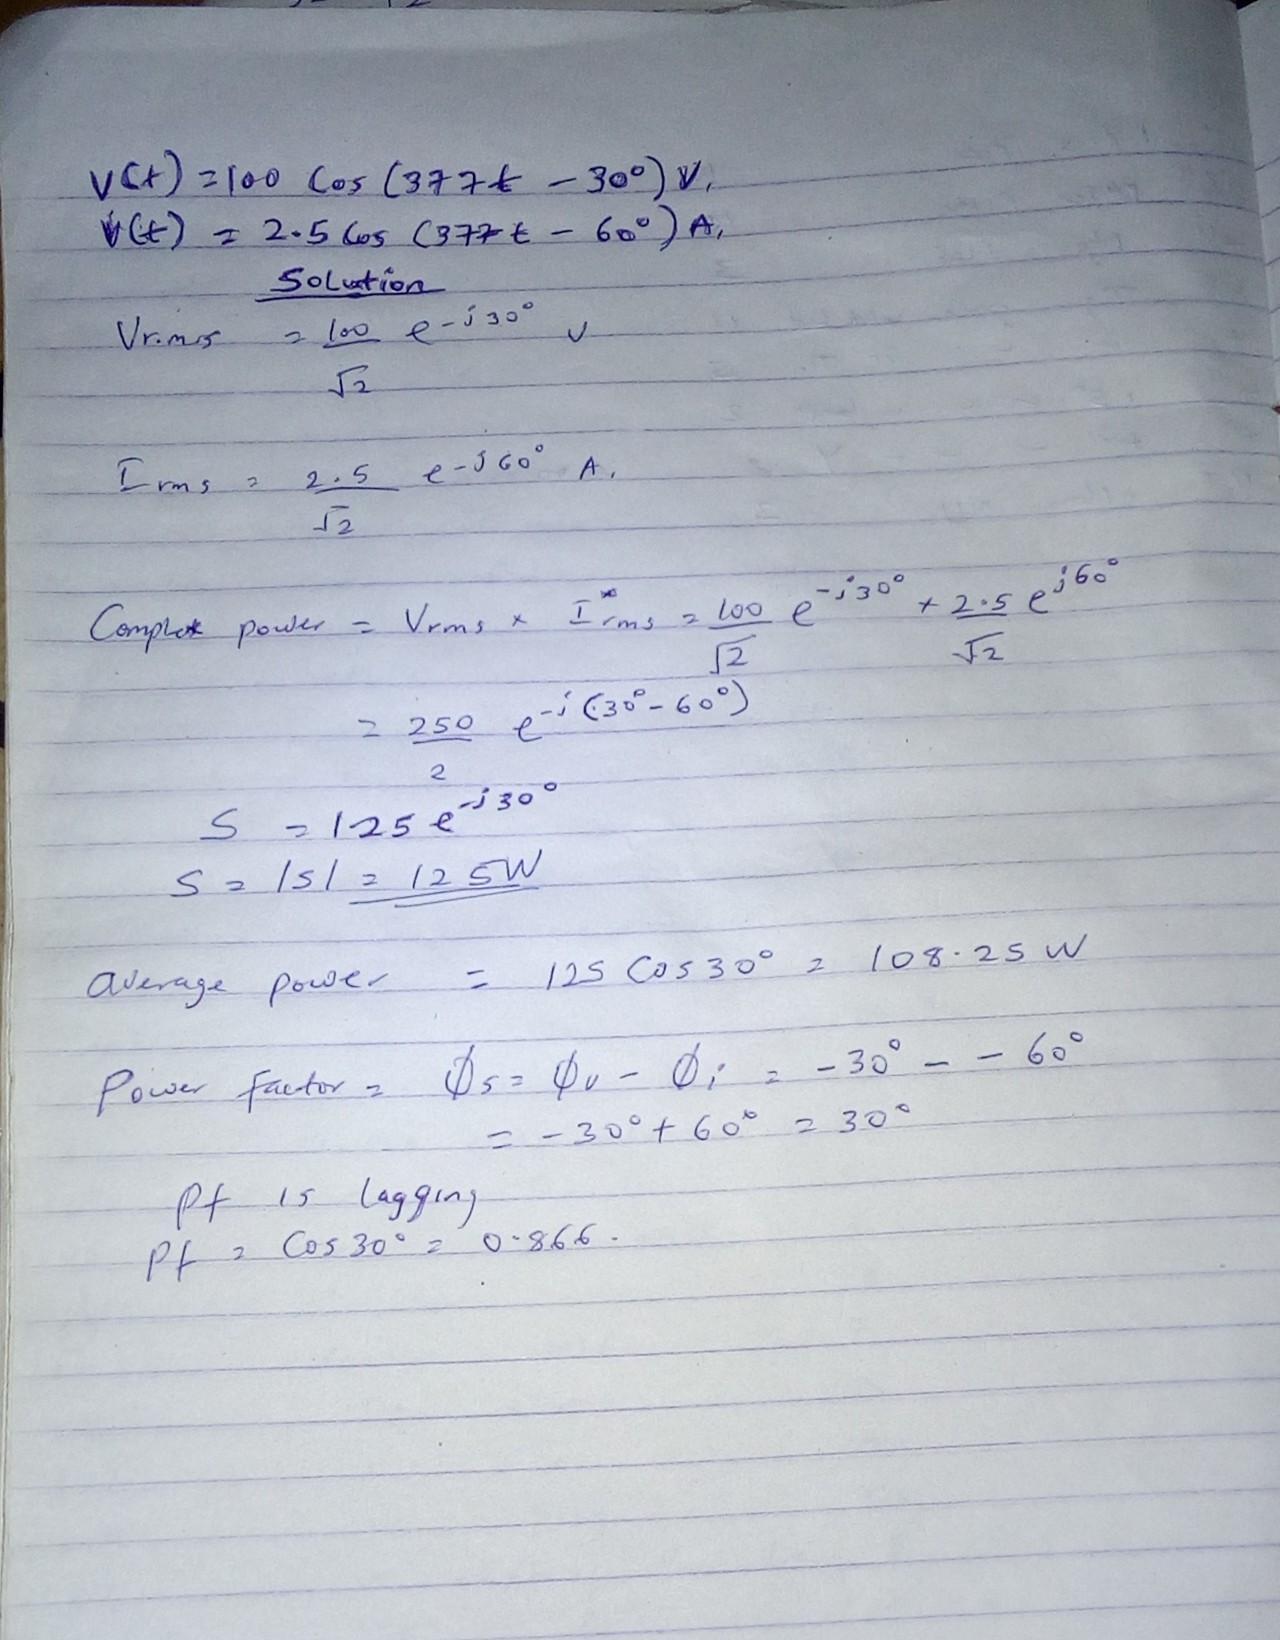 V(t) = 100 Cos (377t - 30°) V,
i(t) = 2.5 Cos (377t - 60°) A,
Solution
Vr.m.s = 100/√2 e^-j30° V
Irms = 2.5/√2 e^-j60° A,
Complex power = Vrms × I*rms = 100/√2 e^-j30° + 2.5/√2 e^j60°
= 250/2 e^-j(30°-60°)
S = 125 e^-j30°
S = |S| = 125W
average power = 125 Cos30° = 108.25 W
Power factor = Øs = Øv - Øi = -30° - - 60°
= -30° + 60° = 30°
Pf is lagging
Pf = Cos 30° = 0.866.